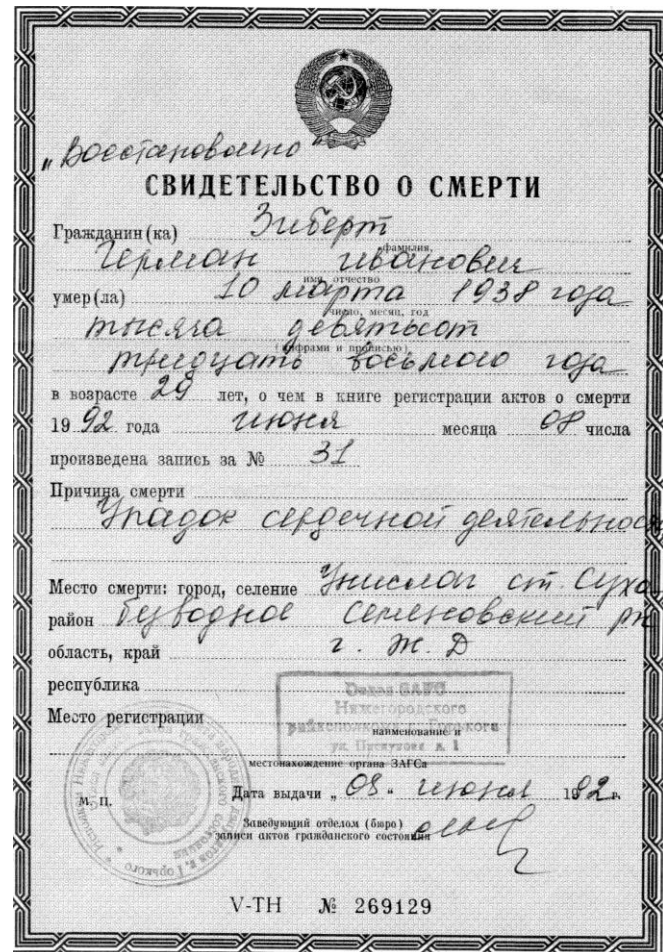 "Восстановлено"
СВИДЕТЕЛЬСТВО О СМЕРТИ
Гражданин (ка) Зиберт
фамилия,
Герман Иванович
имя, отчество
умер(ла) 10 марта 1938 года
число, месяц, год
тысяча девятьсот
(цифрами и прописью)
тридцать восьмого года
в возрасте 29 лет, о чем в книге регистрации актов о смерти
19 92 года июня месяца 08 числа
произведена запись за № 31
Причина смерти
Упадок сердечной деятельнос
Место смерти: город, селение Унжлаг ст. Сухо
район безводное Семеновский рн
область, край г. ж. д
республика
Отдел ЗАГС
Нижегородского
Место регистрации
райисполкома г. Горького
наименование и
ул. Пискунова д. 1
местонахождение органа ЗАГСа
М. П.
Дата выдачи „ 08 " июня 19 92 г.
Заведующий отделом (бюро)
записи актов гражданского состояния
V-ТН № 269129